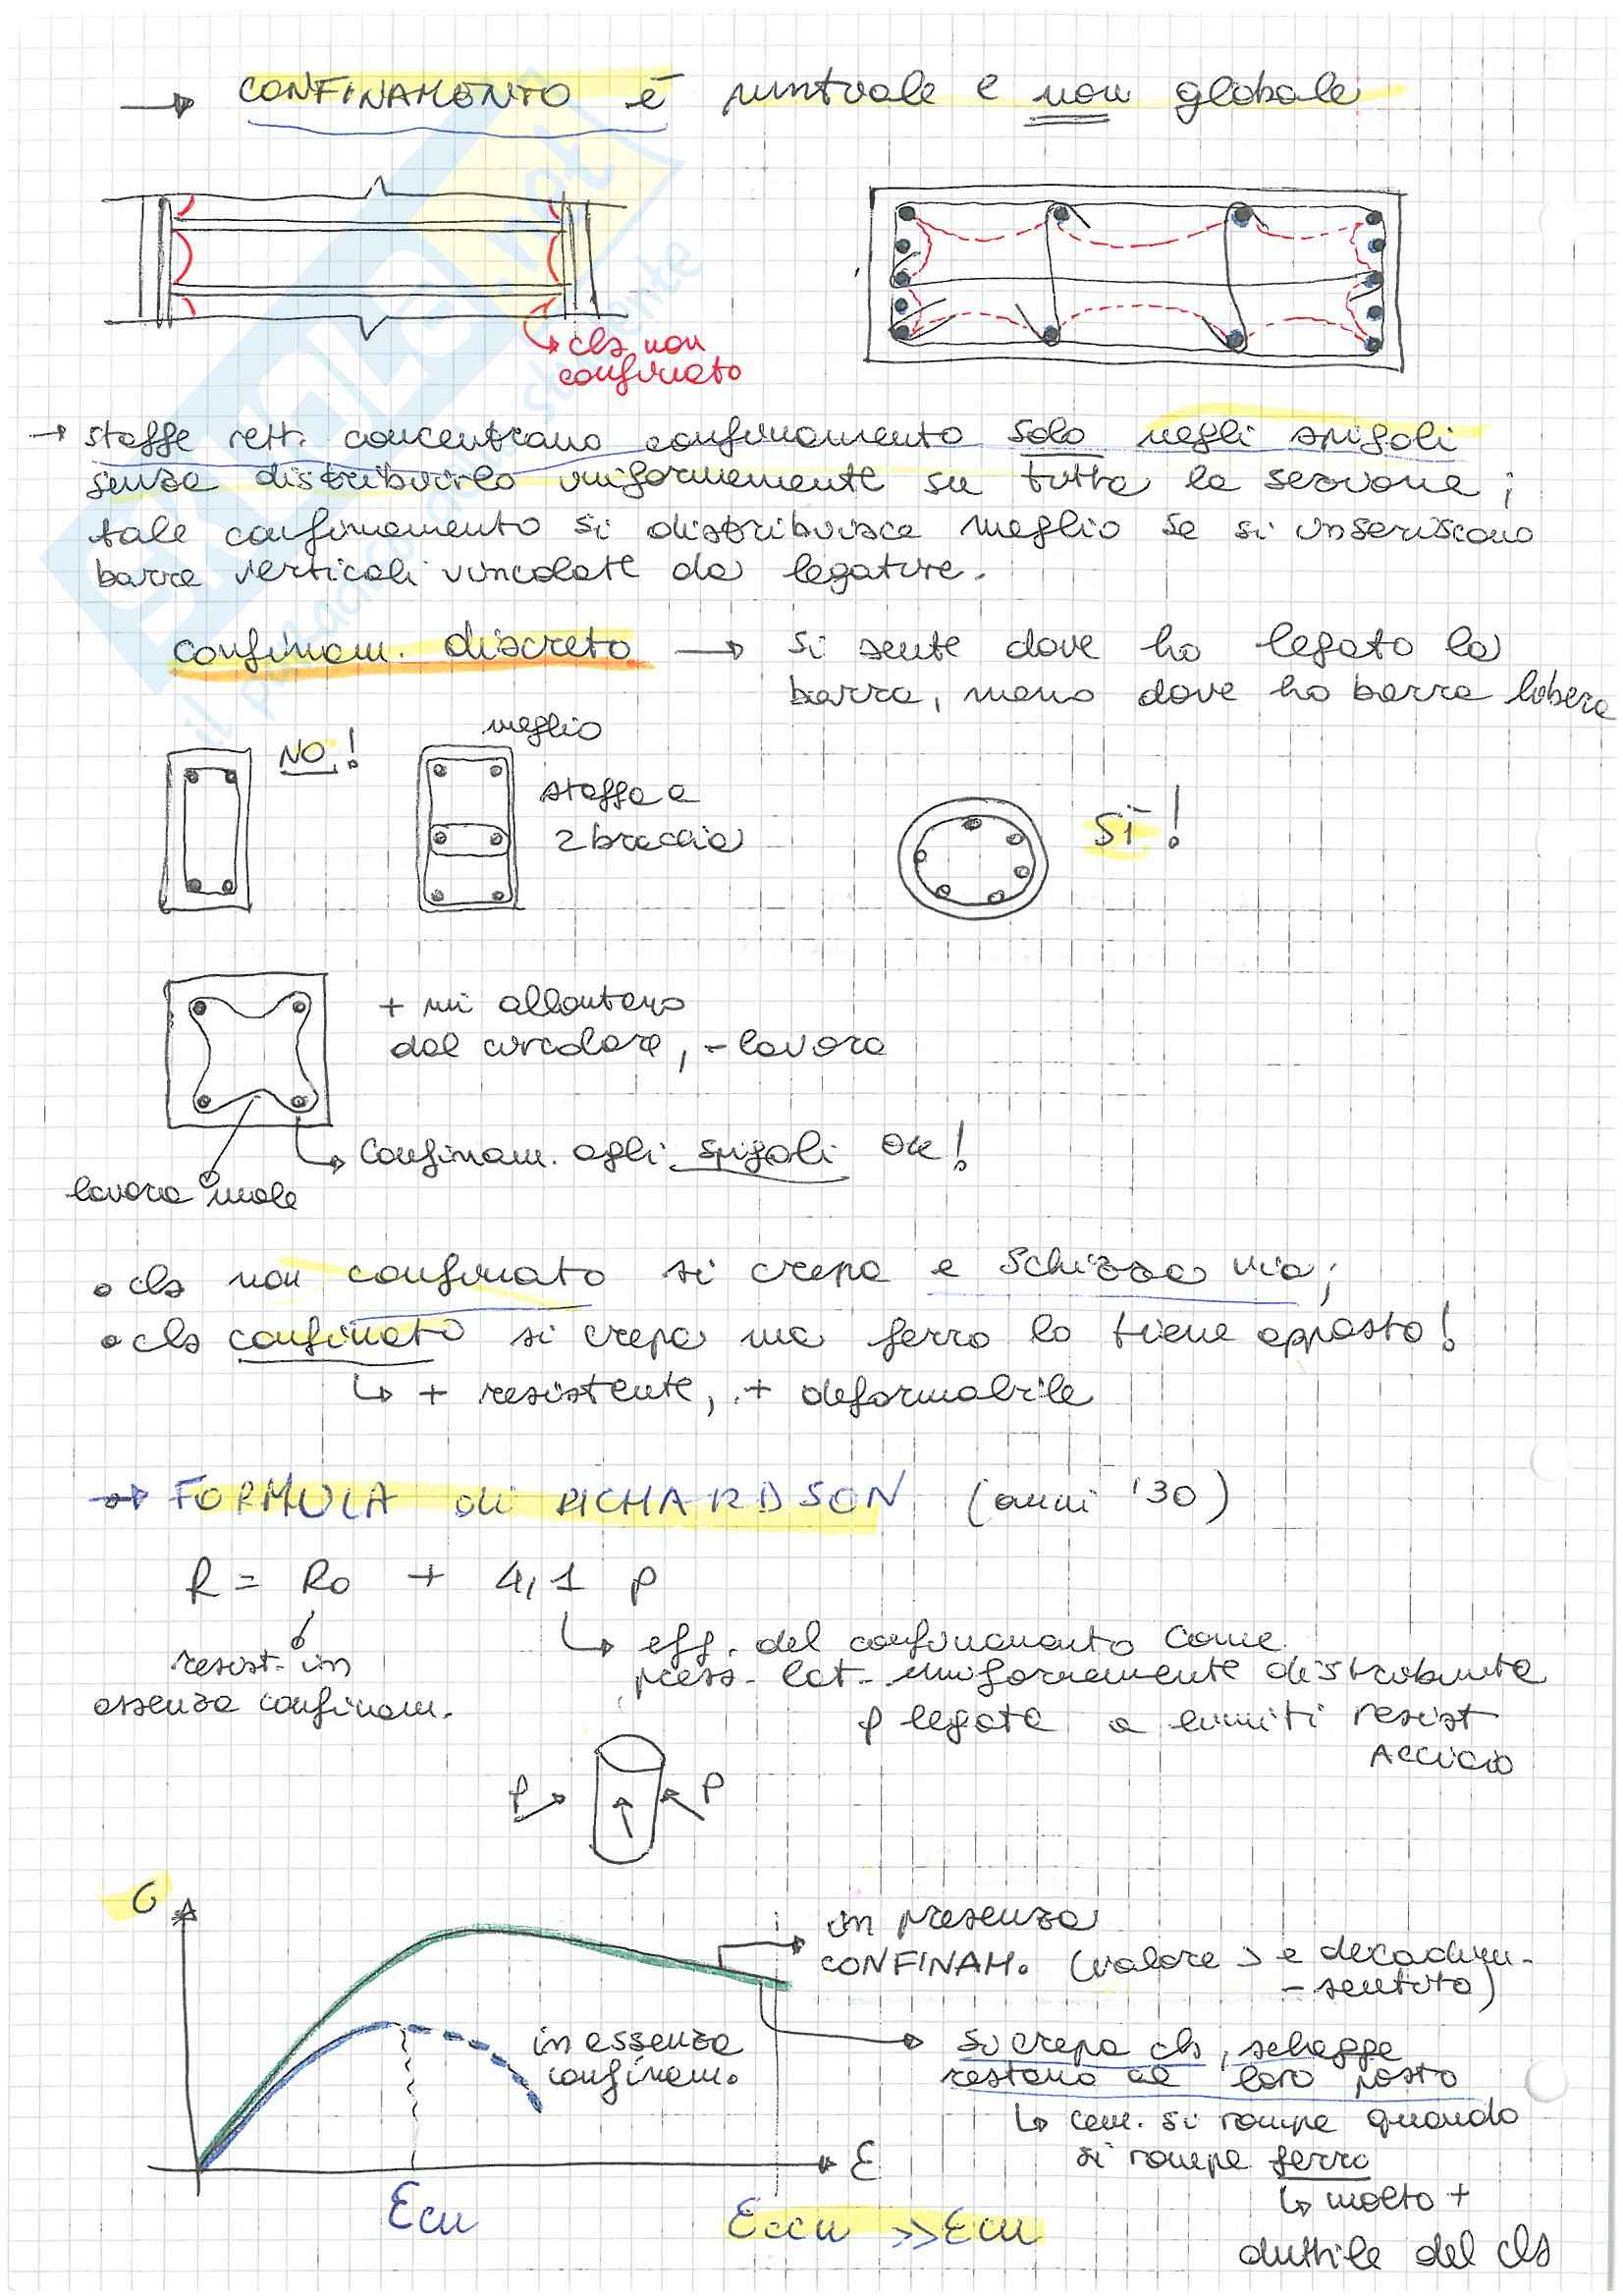 → CONFINAMENTO è puntuale e non globale
↳ cls non
confinato
→ staffe rett. concentrano confinamento solo negli spigoli
senza distribuirlo uniformemente su tutta la sezione;
tale confinamento si distribuisce meglio se si inseriscono
barre verticali vincolate da legature.
confinam. discreto → si sente dove ho legato la
barra, meno dove ho barra libera
NO!
meglio
staffa a
2 braccia
SÌ!
+ mi allontano
dal circolare, - lavora
↳ confinam. agli spigoli ok!
lavora male
• cls non confinato si crepa e schizza via;
• cls confinato si crepa ma ferro lo tiene apposto!
↳ + resistente, + deformabile
→ FORMULA di RICHARDSON (anni '30)
R = R0 + 4,1 p
↳ eff. del confinamento come
press. lat. uniformemente distribuita
p legata a limiti resist
ACCIAIO
resist. in
assenza confinam.
p p
σ
in presenza
CONFINAM. (valore > e decadim-
-sentito)
in assenza
confinam.
si crepa cls, schegge
restano al loro posto
↳ cem. si rompe quando
si rompe ferro
↳ molto +
duttile del cls
ε
Ecu Eccu >> Ecu